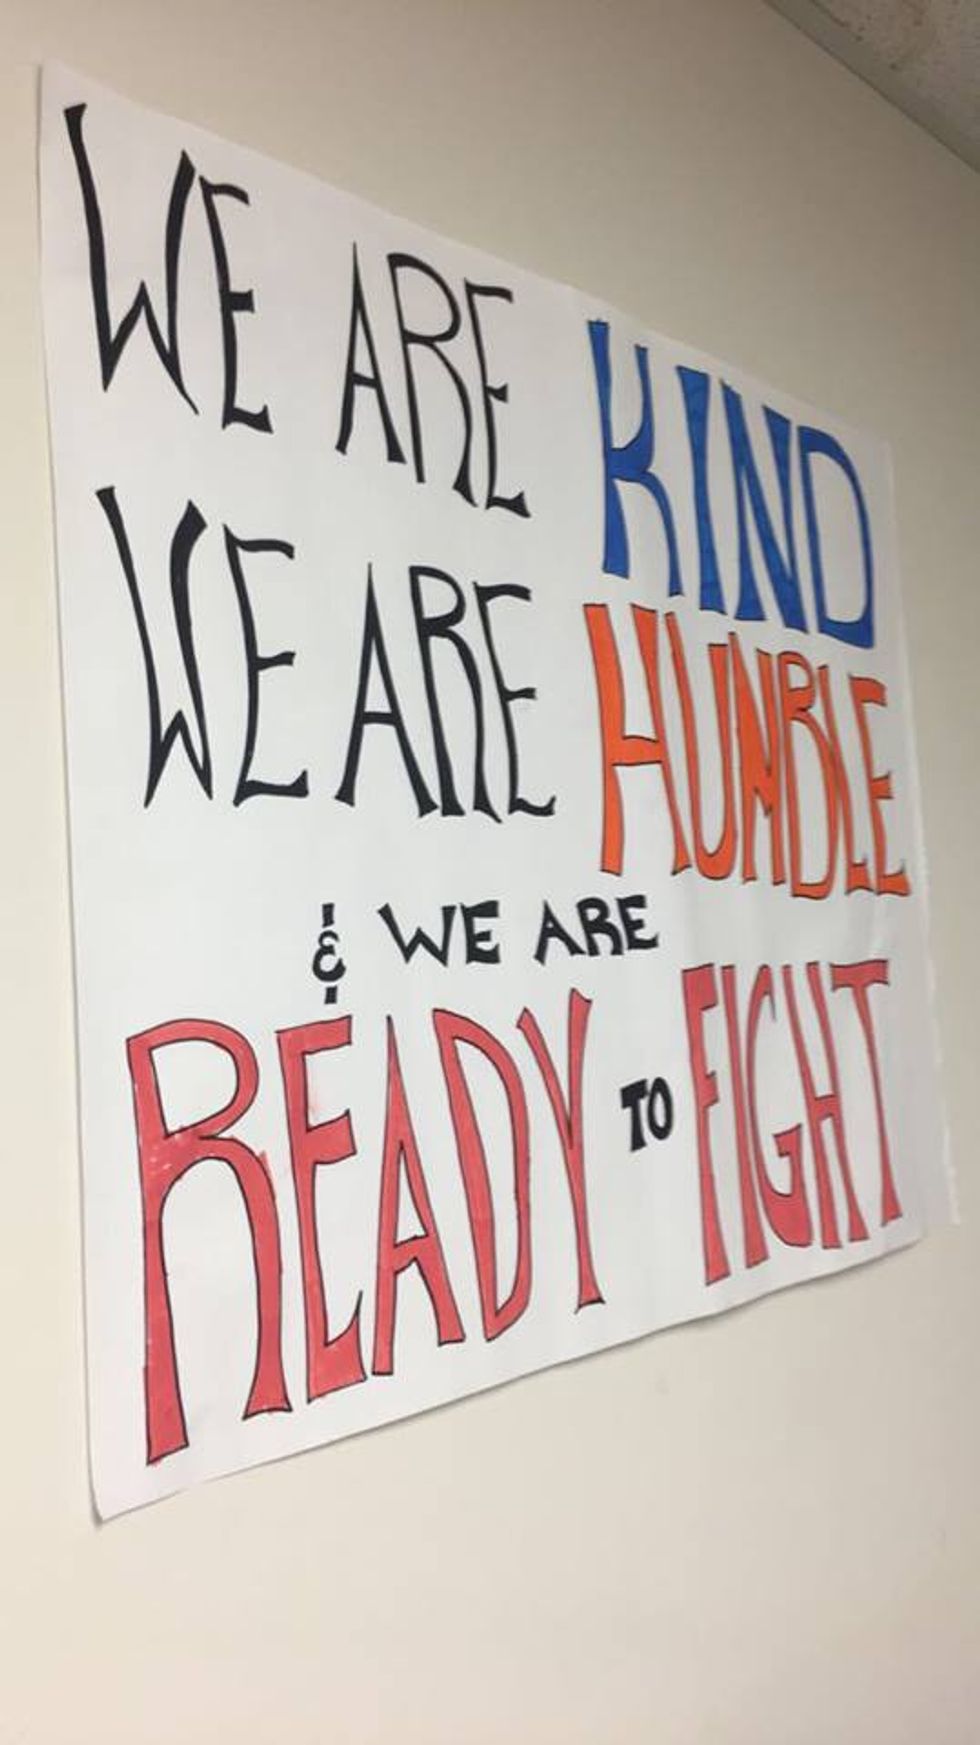 WE ARE KIND
WE ARE HUMBLE
& WE ARE
READY TO FIGHT